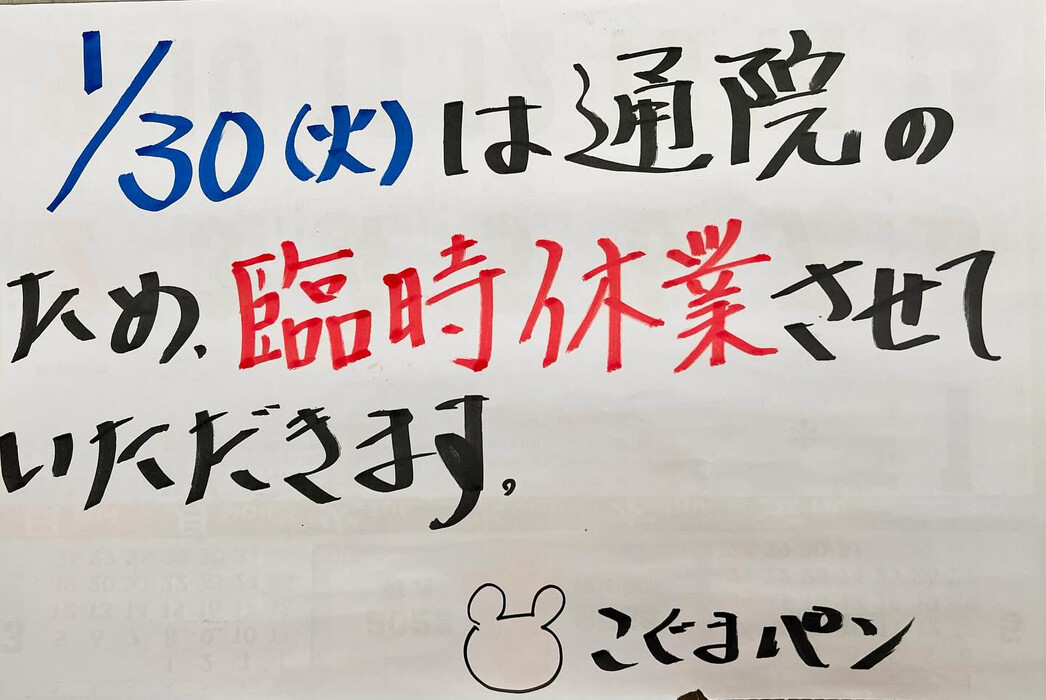 1/30(火)は通院の
ため、臨時休業させて
いただきます。
こぐまパン